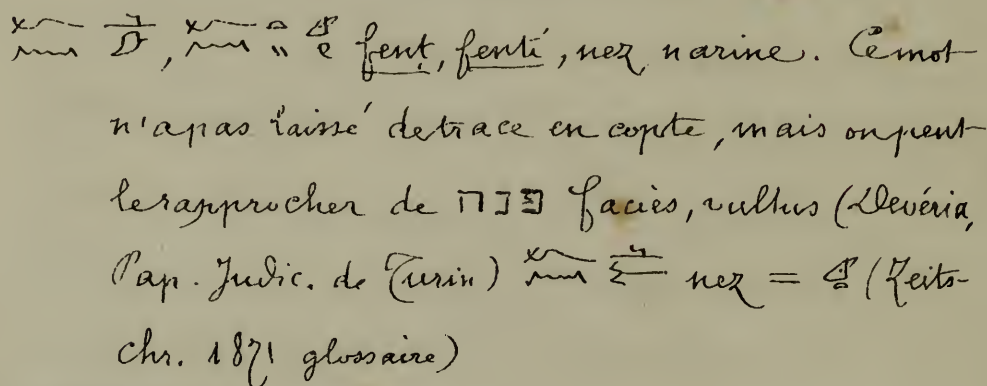 fent, fenti, nez, narine. Ce mot
n'a pas laissé de trace en copte, mais on peut
le rapprocher de פנה facies, vultus (Devéria,
Pap. Judic. de Turin) nez = (Zeits-
chr. 1871 glossaire)